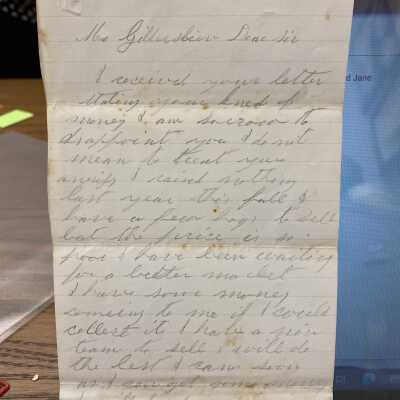 Mr Gillespie Dear Sir
I received your letter
stating your kned of
money I am so crow to
disappoint you I do not
mean to treat you
wrong I raised nothing
last year this fall I
have a few hogs to sell
but the price is so
poor I have been waiting
for a better market
I have some money
coming to me if I could
collect it I have a fine
team to sell I will do
the best I can
d Jane